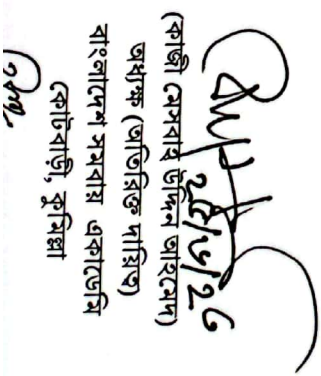 ২৫/৫/২৬
(কাজী মেসবাহ উদ্দিন আহমেদ)
অধ্যক্ষ (অতিরিক্ত দায়িত্ব)
বাংলাদেশ সমবায় একাডেমি
কোটবাড়ী, কুমিল্লা